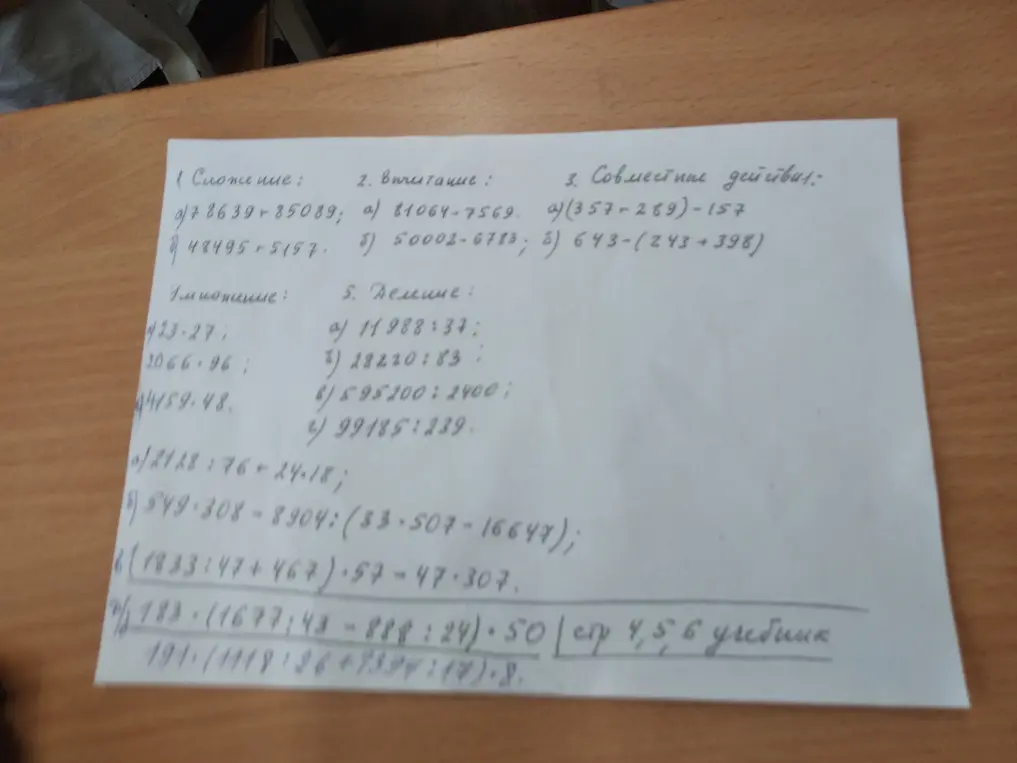 1 Сложение: 2. Вычитание: 3. Совместные действия:
а) 78639+85089; а) 81064-7569. а) (357-289)-157
б) 48495+5157. б) 50002-6783; б) 643-(243+398)
Умножение: 5. Деление:
а) 23·27; а) 11988:37;
2066·96; б) 28220:83;
4159·48. в) 595200:2400;
г) 99185:239.
а) 2128:76+24·18;
б) 549·308-8904:(33·507-16647);
в (1833:47+467)·57-47·307.
183·(1677:43-888:24)·50 стр 4,5,6 учебник
191·(1118:26+2394:17)·8.